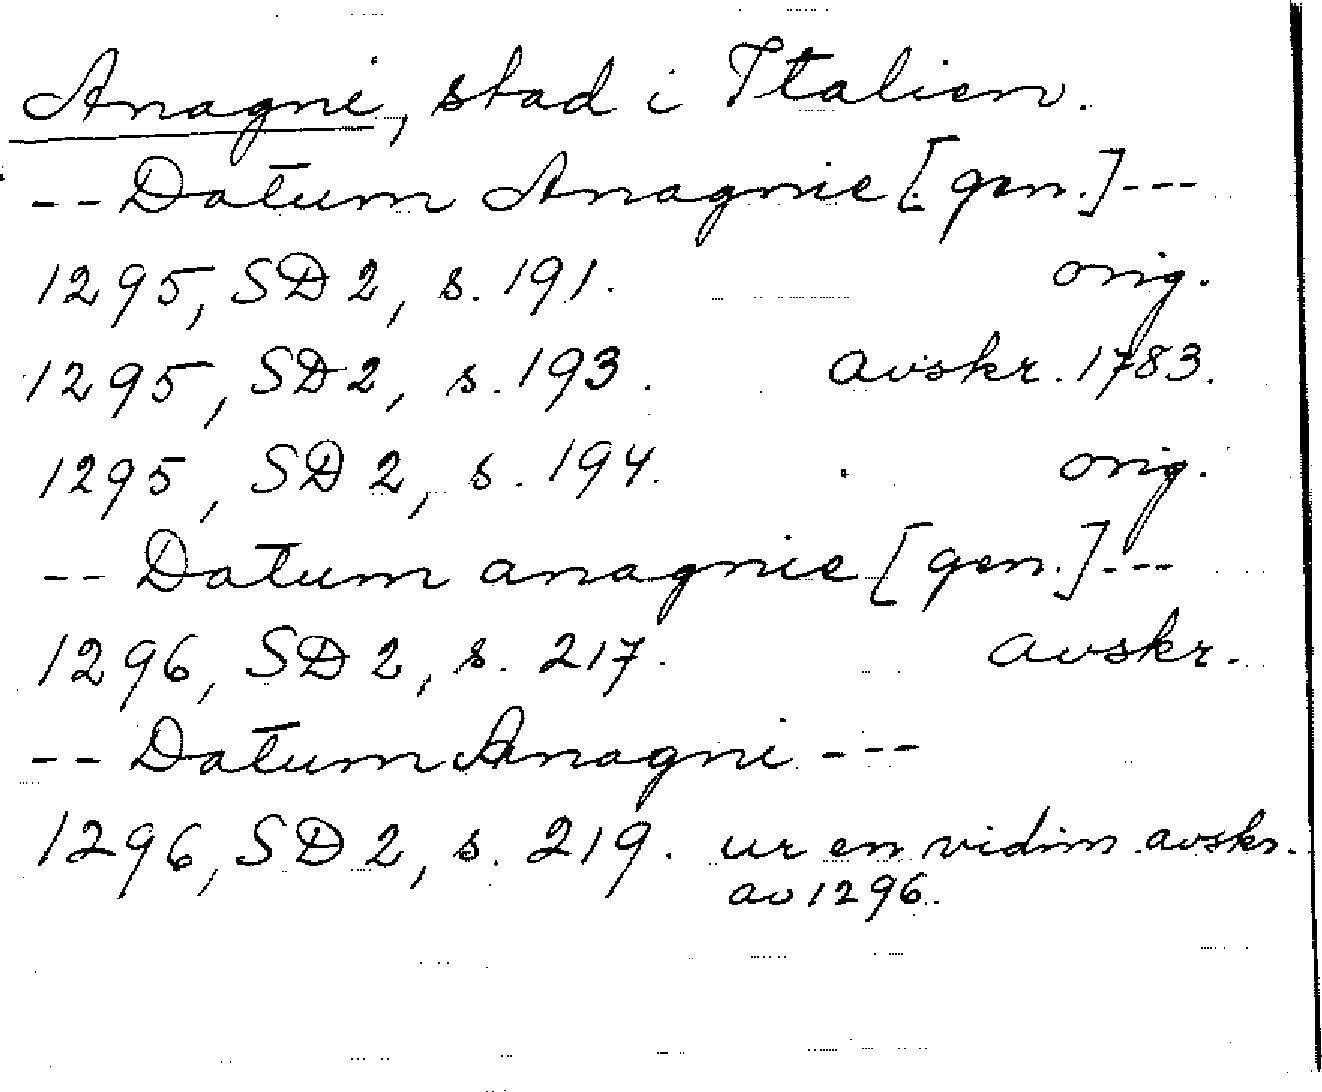 Anagni, stad i Italien.
-- Datum Anagnie [gen.] ---
1295, SD 2, s. 191. orig.
1295, SD 2, s. 193. avskr. 1783.
1295, SD 2, s. 194. orig.
-- Datum anagnie [gen.] ---
1296, SD 2, s. 217. avskr.
-- Datum Anagni ---
1296, SD 2, s. 219. ur en vidim. avskr.
av 1296.